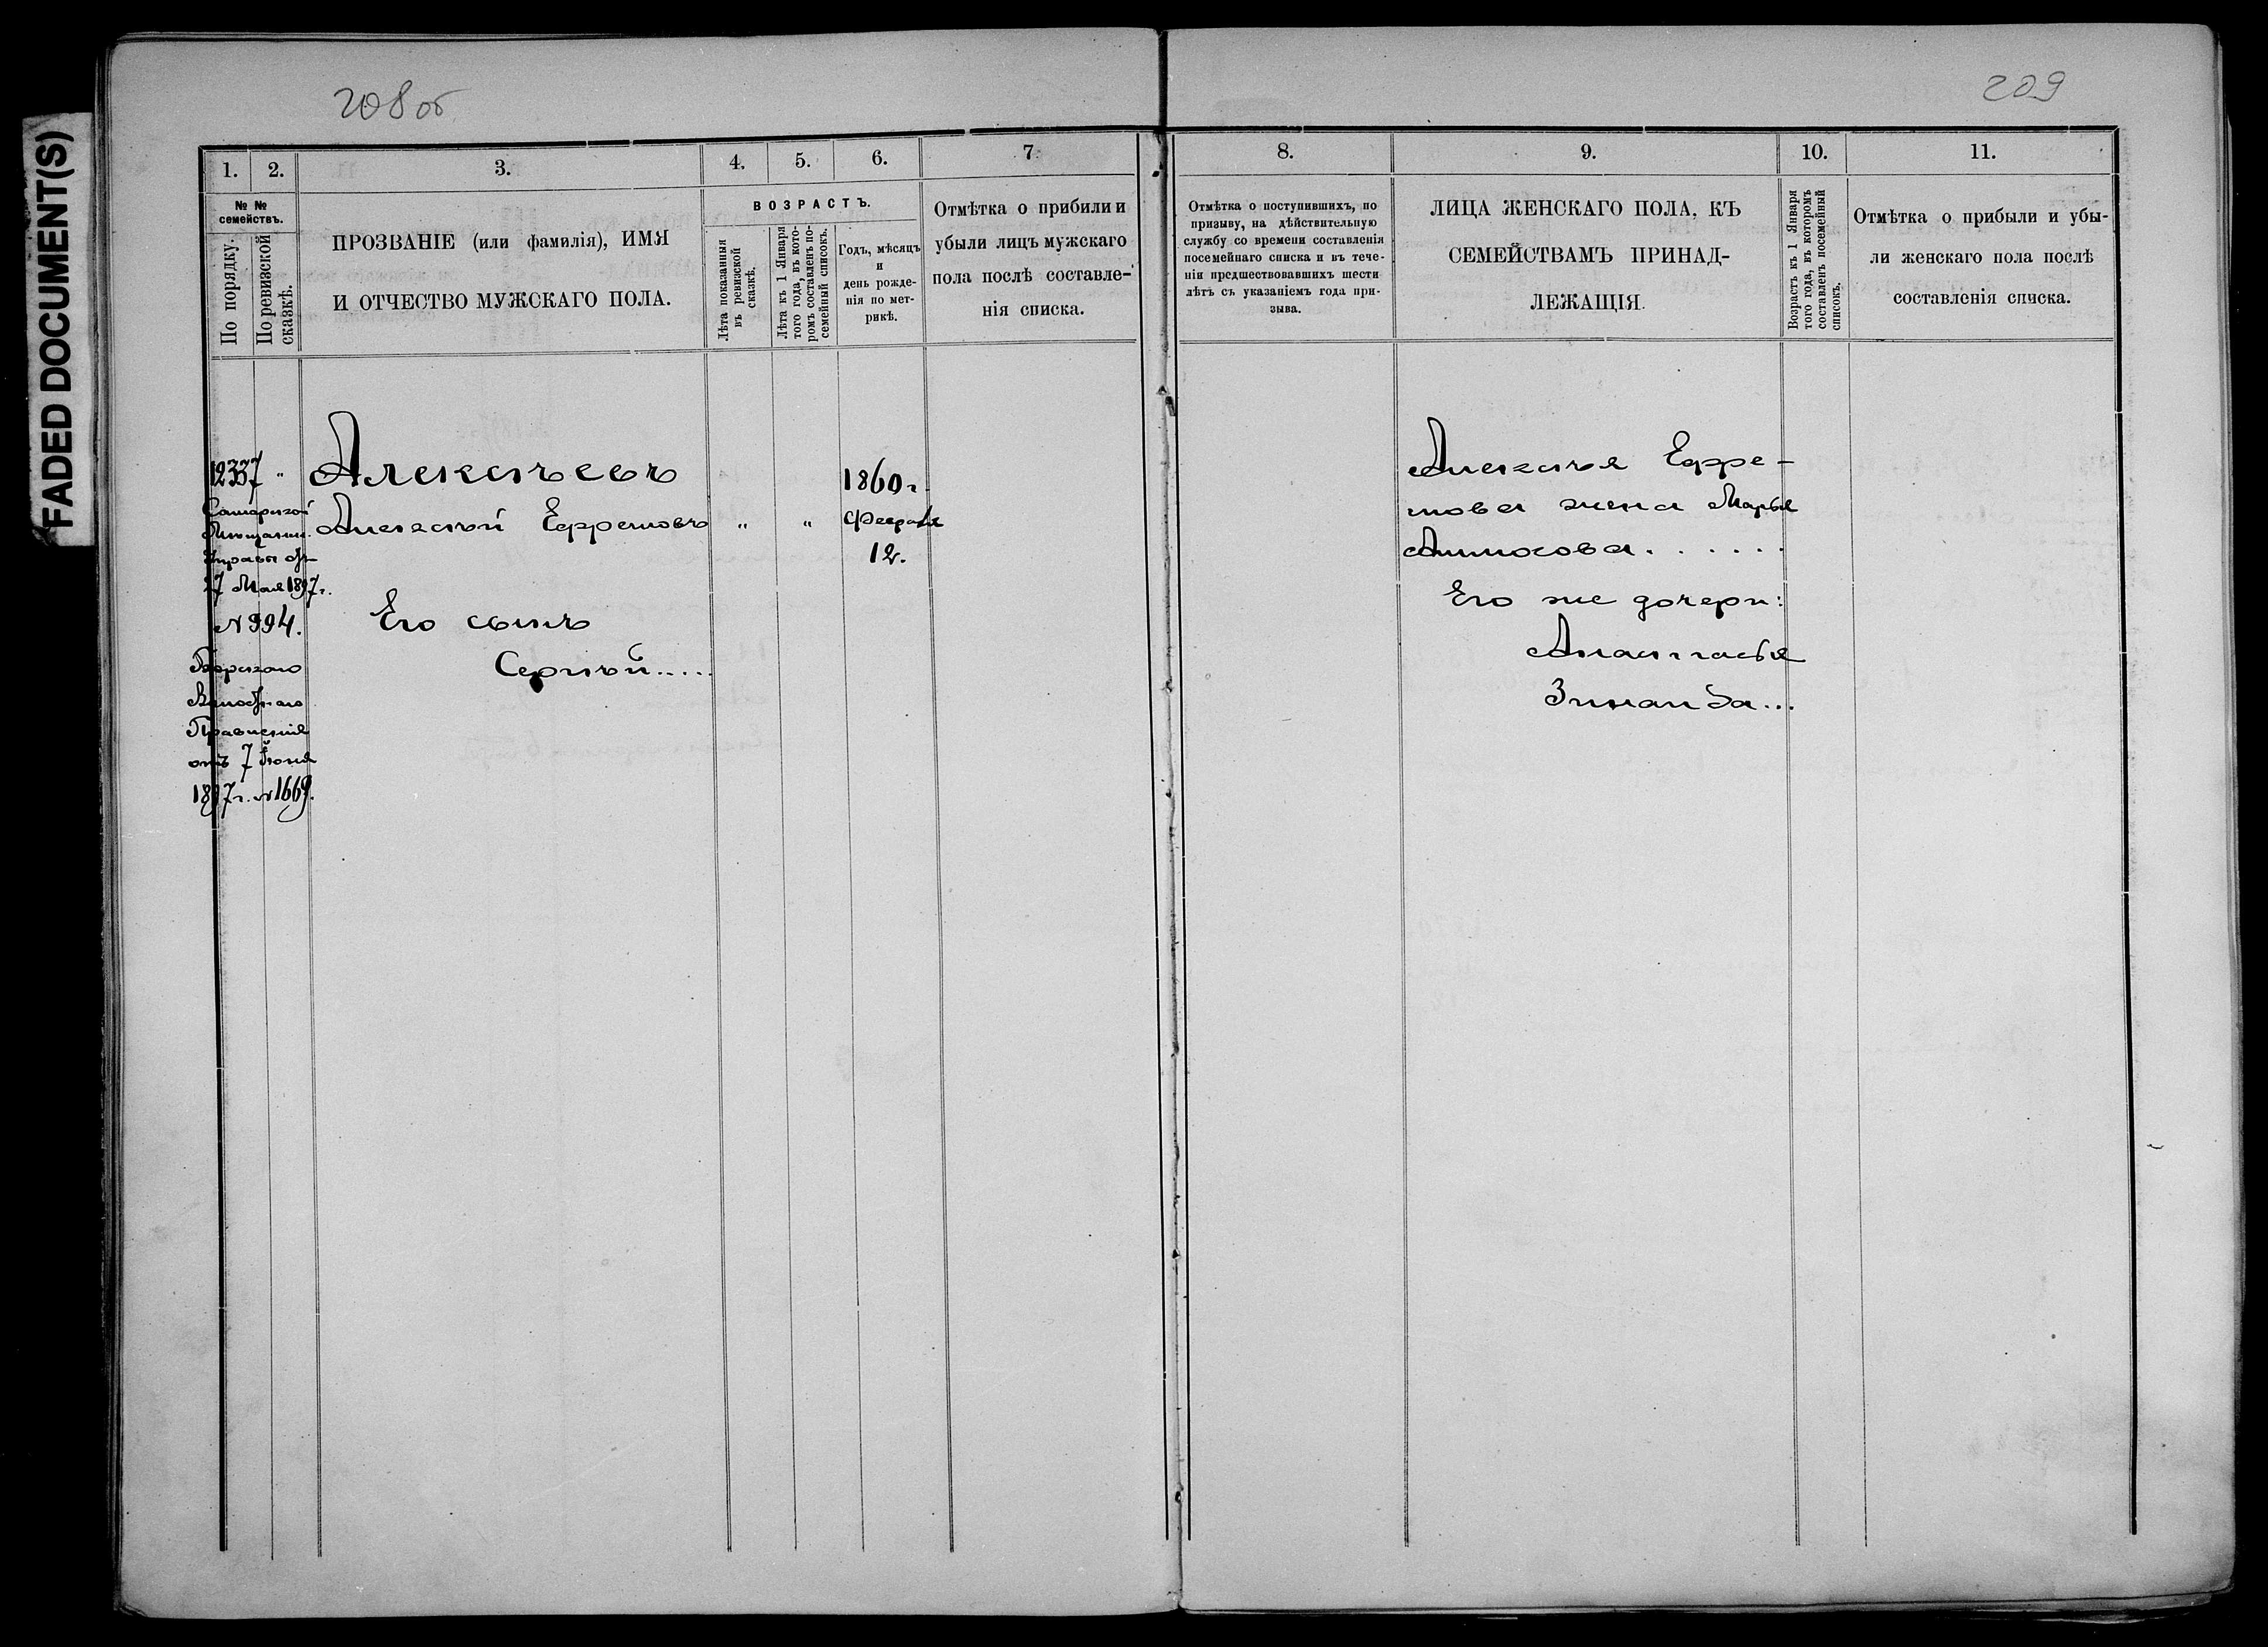 208 об
209
FADED DOCUMENT(S)
1. 2. 3. 4. 5. 6. 7.
№ № семействъ.
По порядку.
По ревизской сказкѣ.
ПРОЗВАНІЕ (или фамилія), ИМЯ
И ОТЧЕСТВО МУЖСКАГО ПОЛА.
ВОЗРАСТЪ.
Лѣта показанныя
въ ревизской
сказкѣ.
Лѣта къ 1 Января
того года, въ кото-
ромъ составленъ по-
семейный списокъ.
Годъ, мѣсяцъ
и
день рожде-
нія по мет-
рикѣ.
Отмѣтка о прибили и
убыли лицъ мужскаго
пола послѣ составле-
нія списка.
12337 " Алексѣевъ
Алексѣй Ефремовъ " "
1860 г.
Февраля
12.
Самарской
Мѣщанск.
Управы от
27 Мая 1897 г.
№ 994.
Борскаго
Волостнаго
Правленія
отъ 7 Іюня
1897 г. № 1669.
Его сынъ
Сергѣй.....
8. 9. 10. 11.
Отмѣтка о поступившихъ, по
призыву, на дѣйствительную
службу со времени составленія
посемейнаго списка и въ тече-
ніи предшествовавшихъ шести
лѣтъ съ указаніемъ года при-
зыва.
ЛИЦА ЖЕНСКАГО ПОЛА, КЪ
СЕМЕЙСТВАМЪ ПРИНАД-
ЛЕЖАЩІЯ.
Возрастъ къ 1 Января
того года, въ которомъ
составленъ посемейный
списокъ.
Отмѣтка о прибыли и убы-
ли женскаго пола послѣ
составленія списка.
Алексѣя Ефре-
мова жена Марья
Амосова......
Его же дочери:
Анастасія
Зинаида...